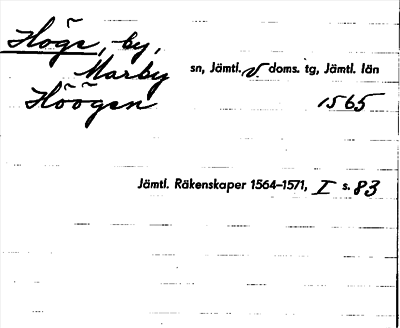 Höge, by,
Marby sn, Jämtl. v. doms. tg, Jämtl. län
Höögen 1565
Jämtl. Räkenskaper 1564–1571, I s. 83